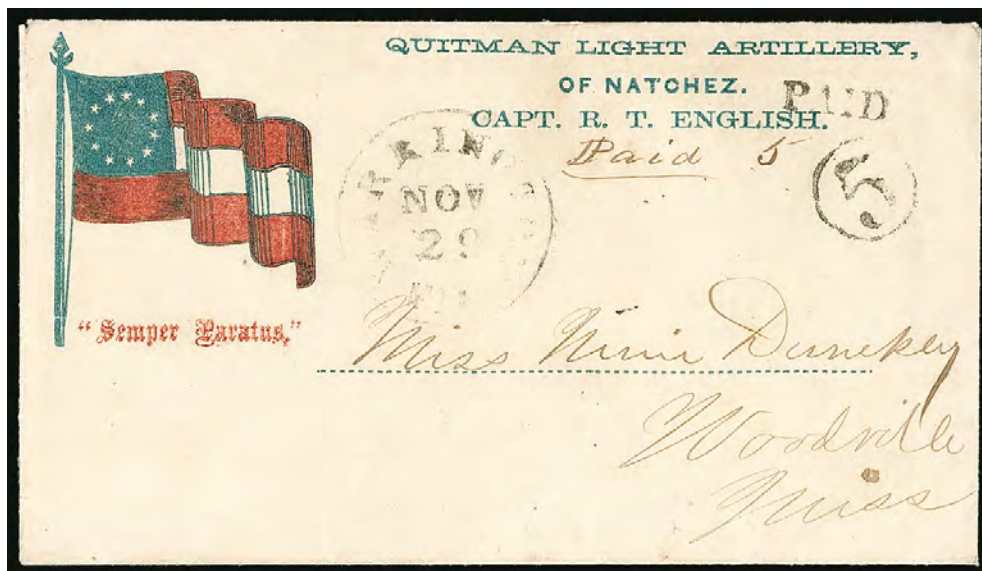 QUITMAN LIGHT ARTILLERY,
OF NATCHEZ.
PAID
CAPT. R. T. ENGLISH.
Paid 5
5
NOV
29
"Semper Paratus,"
Miss
Woodville
Miss